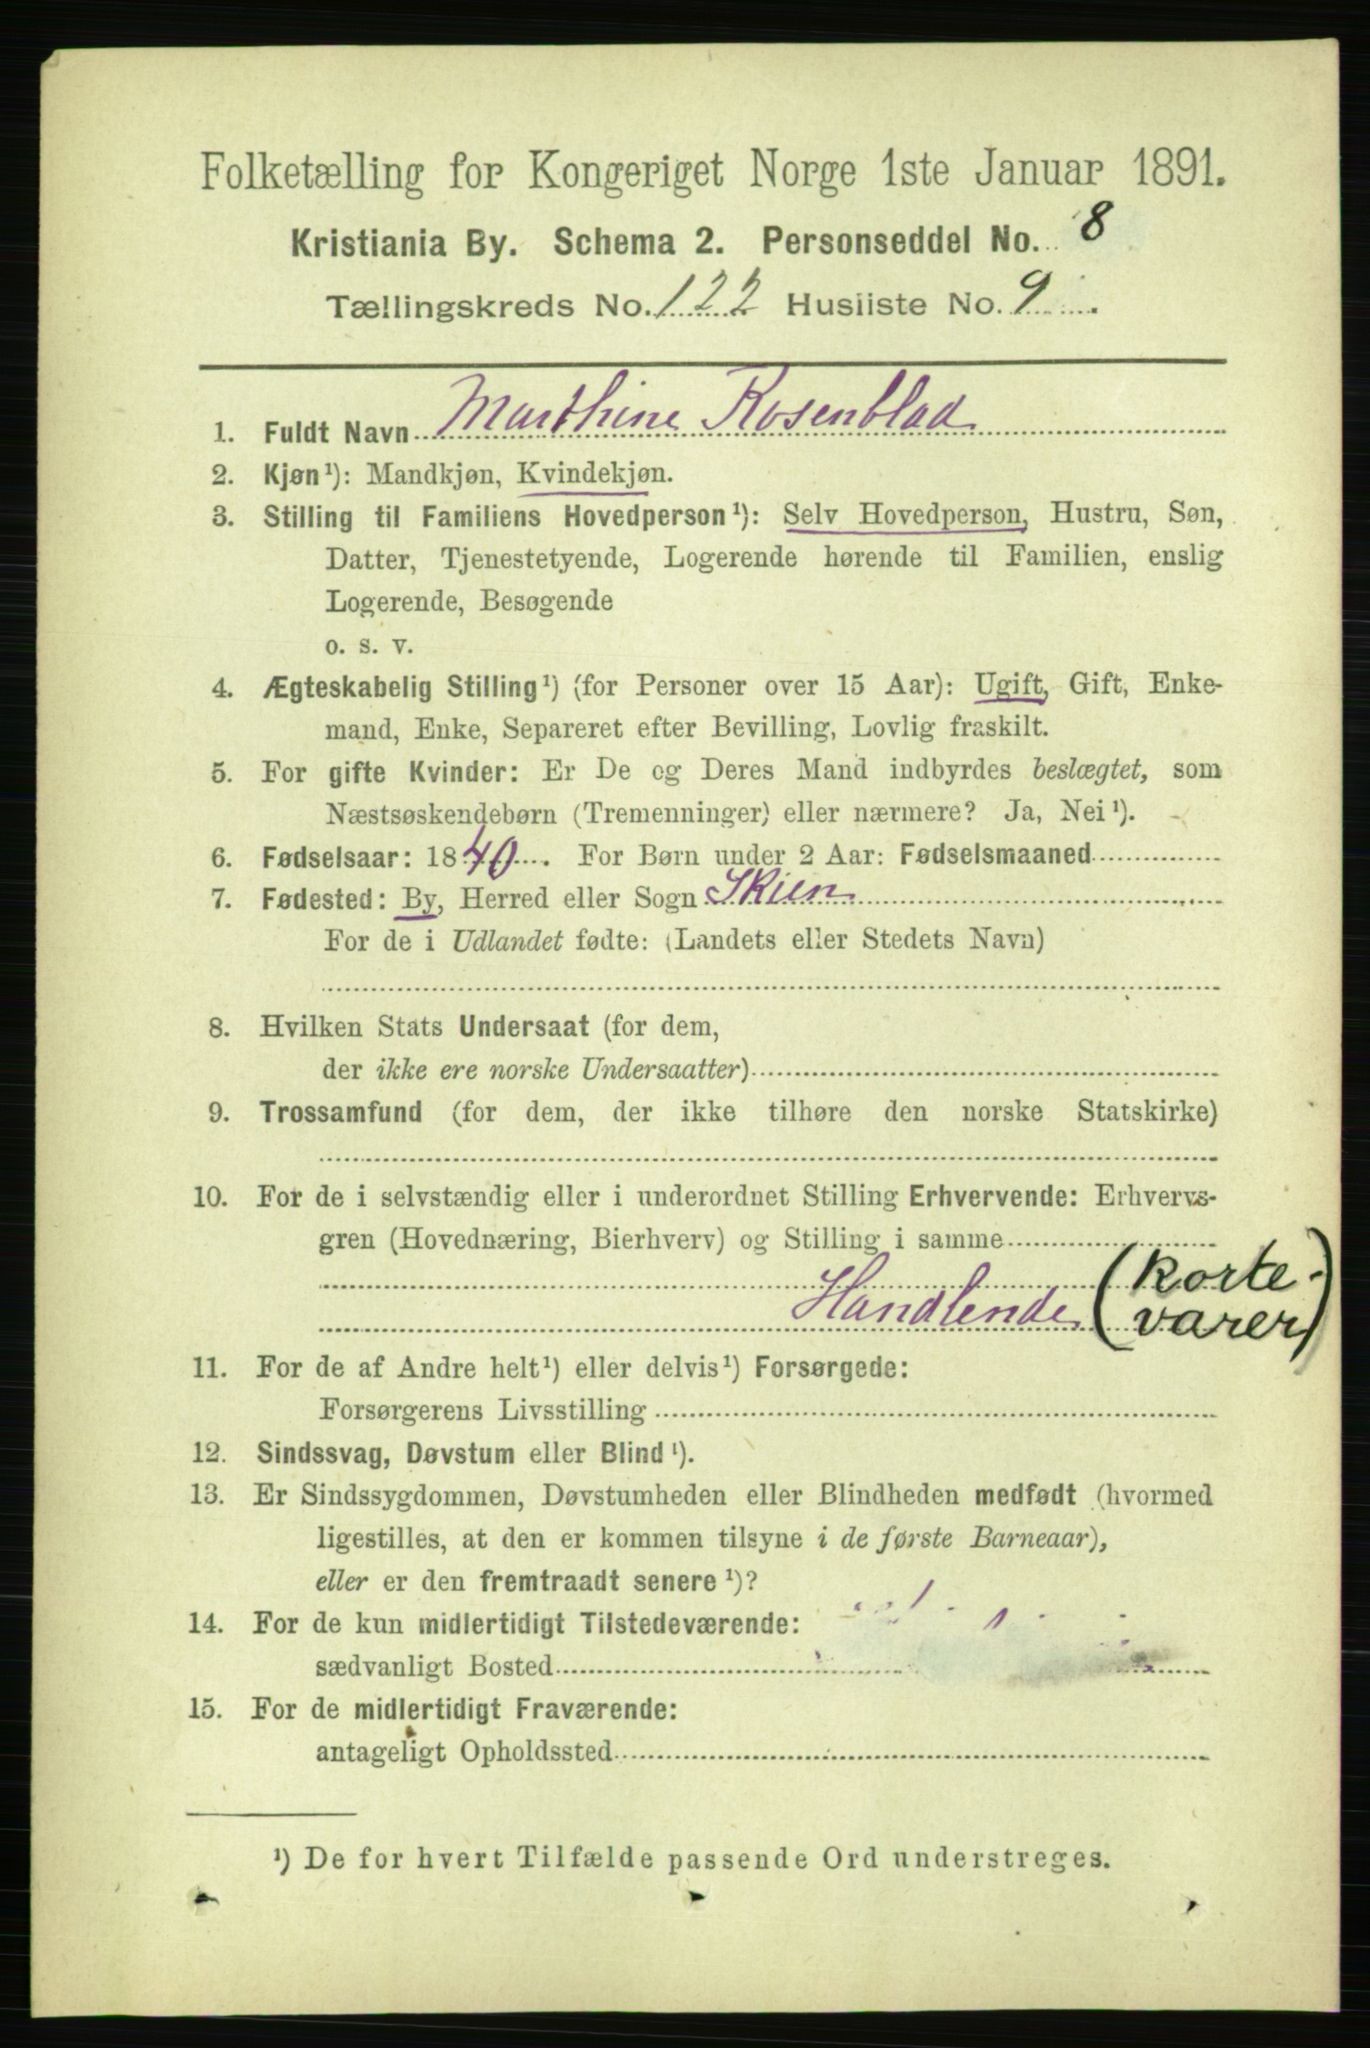 Folketælling for Kongeriget Norge 1ste Januar 1891.
Kristiania By. Schema 2. Personseddel No. 8
Tællingskreds No. 122 Husliste No. 9.
1. Fuldt Navn Marthine Rosenblad
2. Kjøn¹): Mandkjøn, Kvindekjøn.
3. Stilling til Familiens Hovedperson¹): Selv Hovedperson, Hustru, Søn,
Datter, Tjenestetyende, Logerende hørende til Familien, enslig
Logerende, Besøgende
o. s. v.
4. Ægteskabelig Stilling¹) (for Personer over 15 Aar): Ugift, Gift, Enke-
mand, Enke, Separeret efter Bevilling, Lovlig fraskilt.
5. For gifte Kvinder: Er De og Deres Mand indbyrdes beslægtet, som
Næstsøskendebørn (Tremenninger) eller nærmere? Ja, Nei¹).
6. Fødselsaar: 1840. For Børn under 2 Aar: Fødselsmaaned
7. Fødested: By, Herred eller Sogn Skien
For de i Udlandet fødte: (Landets eller Stedets Navn)
8. Hvilken Stats Undersaat (for dem,
der ikke ere norske Undersaatter)
9. Trossamfund (for dem, der ikke tilhøre den norske Statskirke)
10. For de i selvstændig eller i underordnet Stilling Erhvervende: Erhvervs-
gren (Hovednæring, Bierhverv) og Stilling i samme
Handlende (Korte-
varer)
11. For de af Andre helt¹) eller delvis¹) Forsørgede:
Forsørgerens Livsstilling
12. Sindssvag, Døvstum eller Blind¹).
13. Er Sindssygdommen, Døvstumheden eller Blindheden medfødt (hvormed
ligestilles, at den er kommen tilsyne i de første Barneaar),
eller er den fremtraadt senere¹)?
14. For de kun midlertidigt Tilstedeværende:
sædvanligt Bosted
15. For de midlertidigt Fraværende:
antageligt Opholdssted
¹) De for hvert Tilfælde passende Ord understreges.